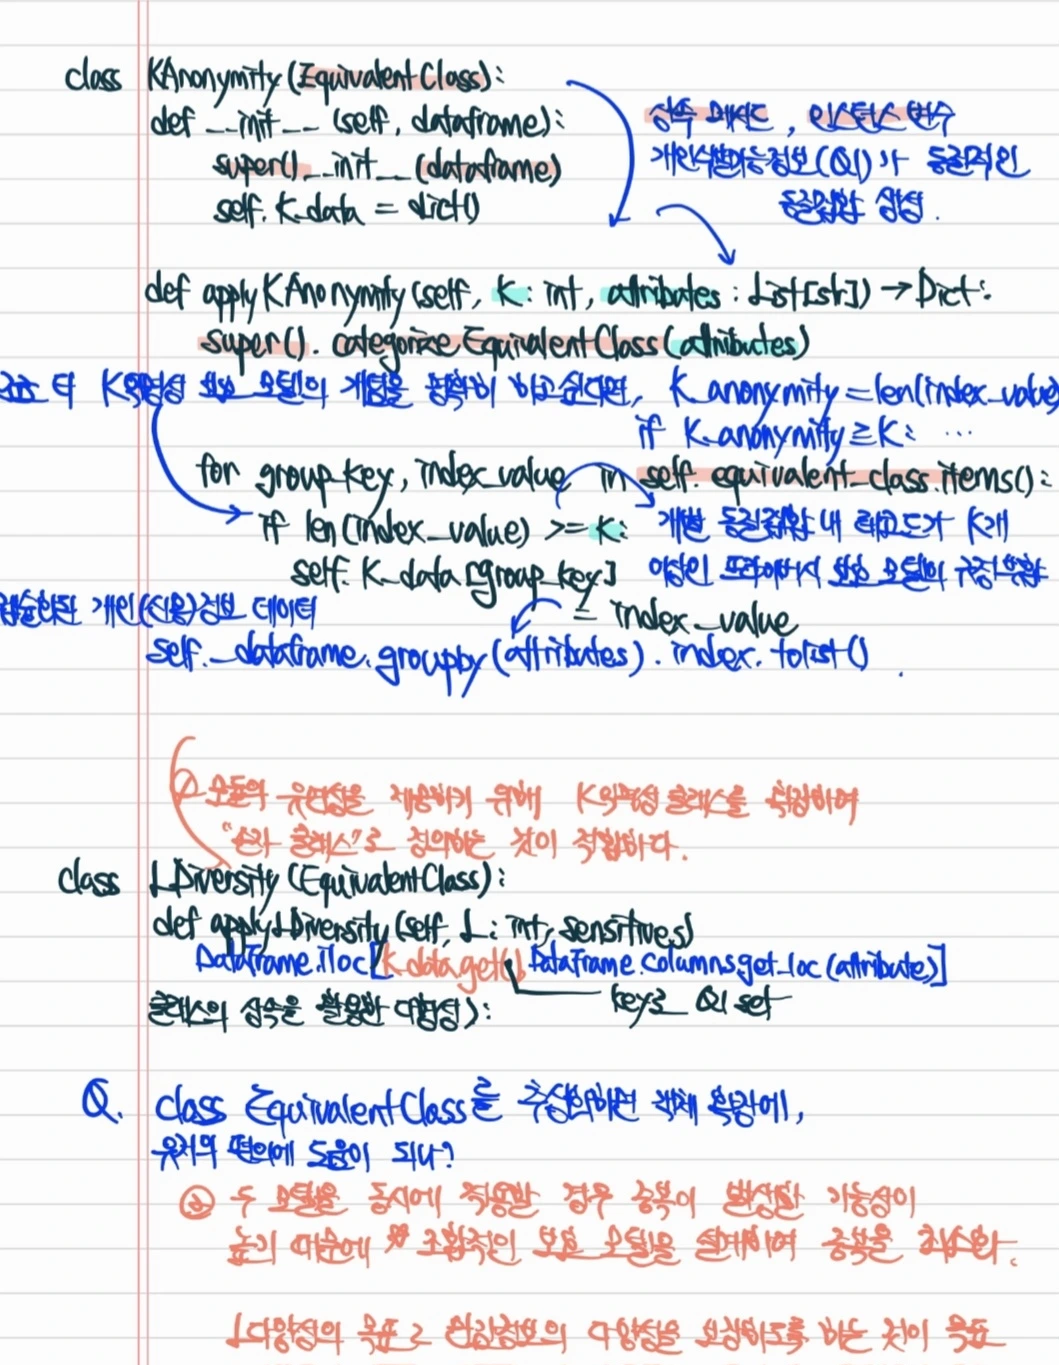 class KAnonymity (EquivalentClass):
def __init__ (self, dataframe):
super().__init__(dataframe)
self. K_data = dict()
상속 메서드, 인스턴스 변수
개인식별가능정보(QI)가 동질적인
동질집합 생성.
def applyKAnonymity(self, K: int, attributes : List[str]) → Dict:
super(). categorizeEquivalentClass(attributes)
K익명성 보호 모델의 개념을 명확히 하고 싶다면, K_anonymity = len(index_value)
if K_anonymity ≥ K: ...
for group_key, index_value in self. equivalent_class.items():
if len(index_value) >= K:
개별 동질집합 내 레코드가 K개
self. K_data [group_key]
이상인 보호 모델의
= index_value
개인(신용)정보 데이터
self._dataframe.groupby(attributes). index. tolist()
모듈의 유연성을 제공하기 위해 K익명성 클래스를 확장하여
"손자 클래스"로 정의하는 것이 적합하다.
class LDiversity (EquivalentClass):
def applyLDiversity (self, L: int, sensitives)
DataFrame.iloc[K_data.get(), DataFrame.columns.get_loc(attribute)]
클래스의 상속을 활용한 다형성):
key로 QI set
Q. class EquivalentClass를 추상화하면 객체 확장에,
유저의 편의에 도움이 되나?
ⓐ 두 모델을 동시에 적용할 경우 중복이 발생할 가능성이
높기 때문에 조합적인 보호 모델을 설계하여 중복을 최소화.
L다양성의 목표로 민감정보의 다양성을 보장하도록 하는 것이 목표